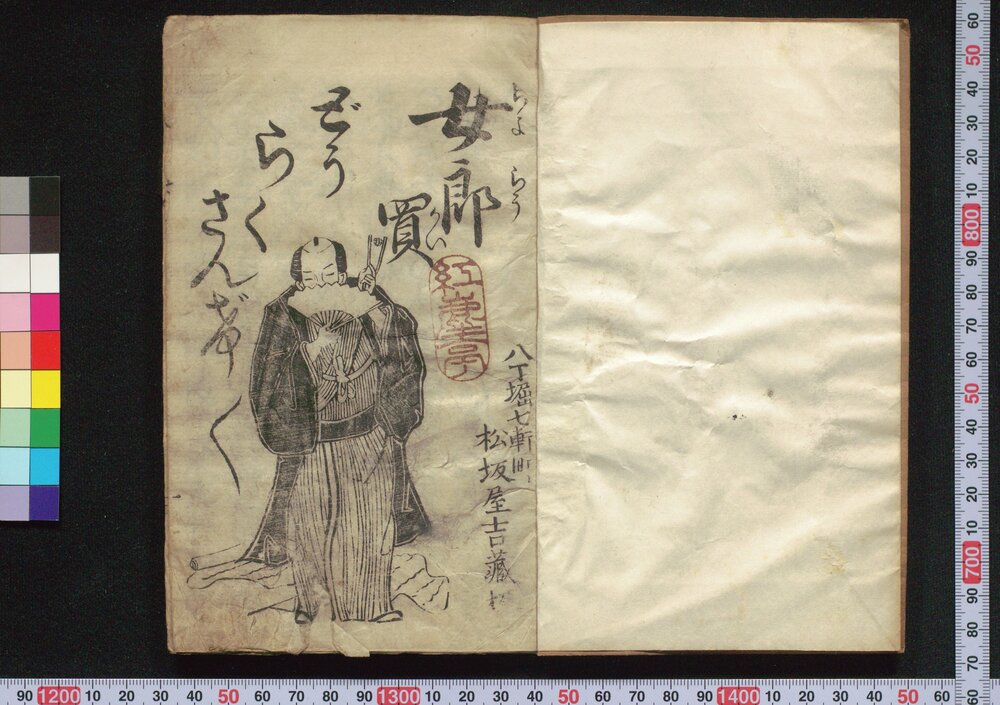 女郎買
ぢよらう
かい
どう
らく
さんげ〳〵
紅毫亭
八丁堀七軒町
松坂屋吉藏
90 1200 10 20 30 40 50 60 70 80 90 1300 10 20 30 40 50 60 70 80 90 1400 10 20 30 40 50 60
60 50 40 30 20 10 800 90 80 70 60 50 40 30 20 10 700 90 80 70 60